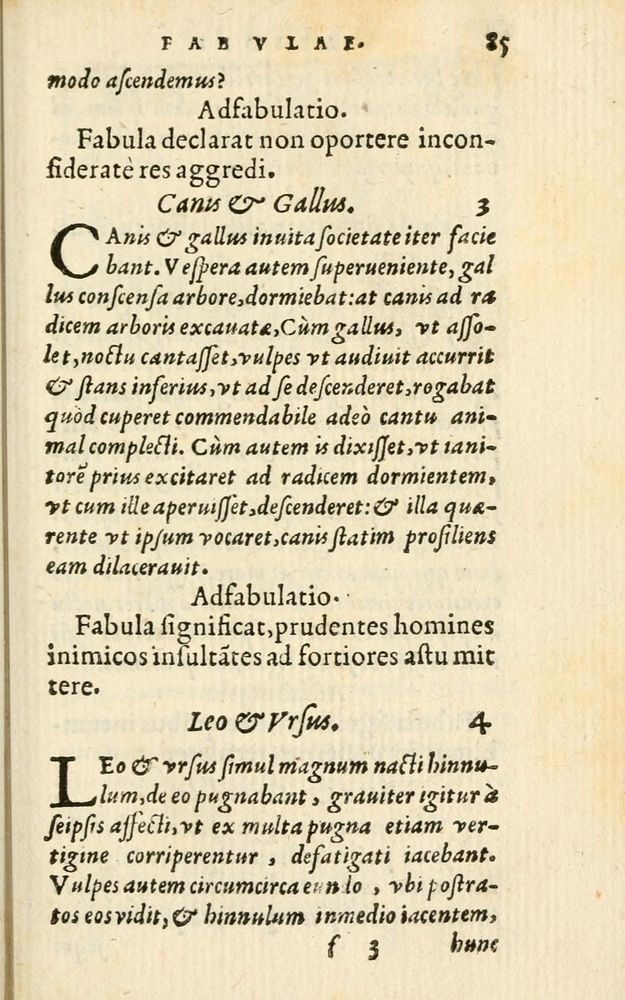 FABVLAE. 85
modo aſcendemus?
Adfabulatio.
Fabula declarat non oportere incon-
ſideratè res aggredi.
Canis & Gallus. 3
CAnis & gallus inuita ſocietate iter facie
bant. Veſpera autem ſuperueniente, gal
lus conſcenſa arbore, dormiebat: at canis ad ra
dicem arboris excauatæ, Cùm gallus, vt aſſo-
let, noctu cantaſſet, vulpes vt audiuit accurrit
& ſtans inferius, vt ad ſe deſcenderet, rogabat
quòd cuperet commendabile adeò cantu ani-
mal complecti. Cùm autem is dixiſſet, vt iani-
torē prius excitaret ad radicem dormientem,
vt cum ille aperuiſſet, deſcenderet: & illa quæ-
rente vt ipſum vocaret, canis ſtatim proſiliens
eam dilacerauit.
Adfabulatio.
Fabula ſignificat, prudentes homines
inimicos inſultātes ad fortiores aſtu mit
tere.
Leo & Vrſus. 4
LEo & vrſus ſimul magnum nacti hinnu-
lum, de eo pugnabant, grauiter igitur à
ſeipſis affecti, vt ex multa pugna etiam ver-
tigine corriperentur, defatigati iacebant.
Vulpes autem circumcirca eundo, vbi poſtra-
tos eos vidit, & hinnulum in medio iacentem,
f 3 hunc